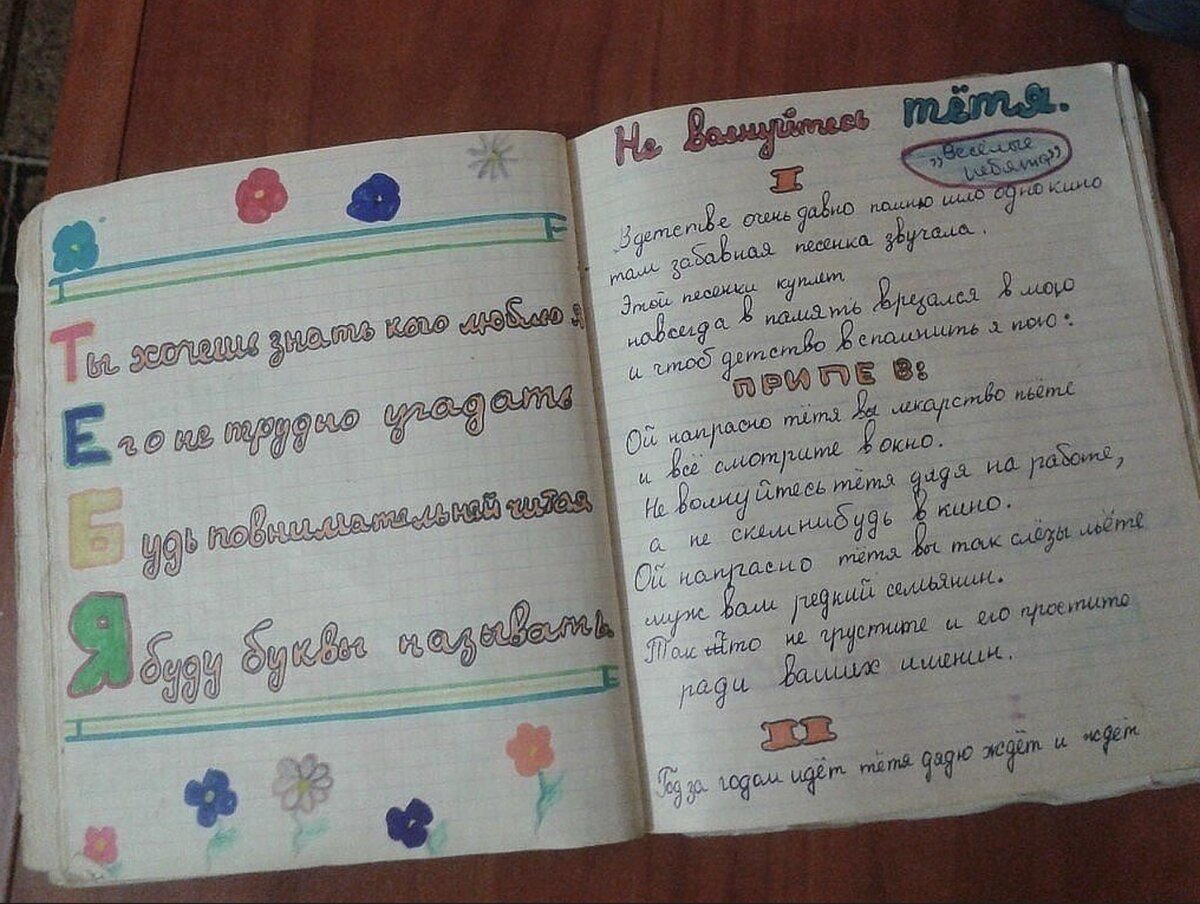 Ты хочешь знать кого люблю я
Его не трудно угадать
Будь повнимательней читая
Я буду буквы называть.
Не волнуйтесь тётя.
„Весёлые
ребята”
I
В детстве очень давно помню шло одно кино
там забавная песенка звучала.
Этой песенки куплет
навсегда в память врезался в мою
и чтоб детство вспомнить я пою:
ПРИПЕВ:
Ой напрасно тётя вы лекарство пьёте
и всё смотрите в окно.
Не волнуйтесь тётя дядя на работе,
а не с кемнибудь в кино.
Ой напрасно тётя вы так слёзы льёте
муж ваш редкий семьянин.
Так что не грустите и его простите
ради ваших именин.
II
Год за годом идёт тётя дядю ждёт и ждёт